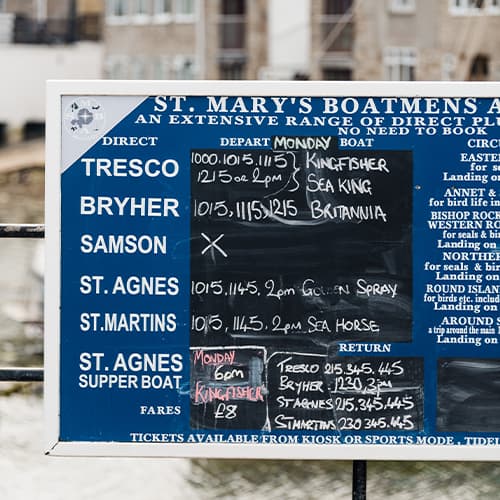 ST. MARY'S BOATMENS A
AN EXTENSIVE RANGE OF DIRECT PLU
NO NEED TO BOOK
DIRECT DEPART MONDAY BOAT CIRC
TRESCO 1000.1015.1115 KINGFISHER
1215 or 2pm SEA KING
BRYHER 1015, 1115, 1215 BRITANNIA
SAMSON X
ST. AGNES 1015, 1145, 2pm GOLDEN SPRAY
ST. MARTINS 1015, 1145. 2pm SEA HORSE
EASTE
for s
Landing on
ANNET &
for bird life in
BISHOP ROCK
WESTERN RO
for seals & bir
Landing on
NORTHER
for seals & bi
Landing on
ROUND ISLAN
for birds etc. includ
Landing on
AROUND S
a trip around the main
Landing on
RETURN
ST. AGNES
SUPPER BOAT
MONDAY
6pm
KINGFISHER
FARES £8
TRESCO 215.345.445
BRYHER. 1230, 3pm
ST AGNES 215.345.445
ST MARTINS 230 345.445
TICKETS AVAILABLE FROM KIOSK OR SPORTS MODE, TIDEL